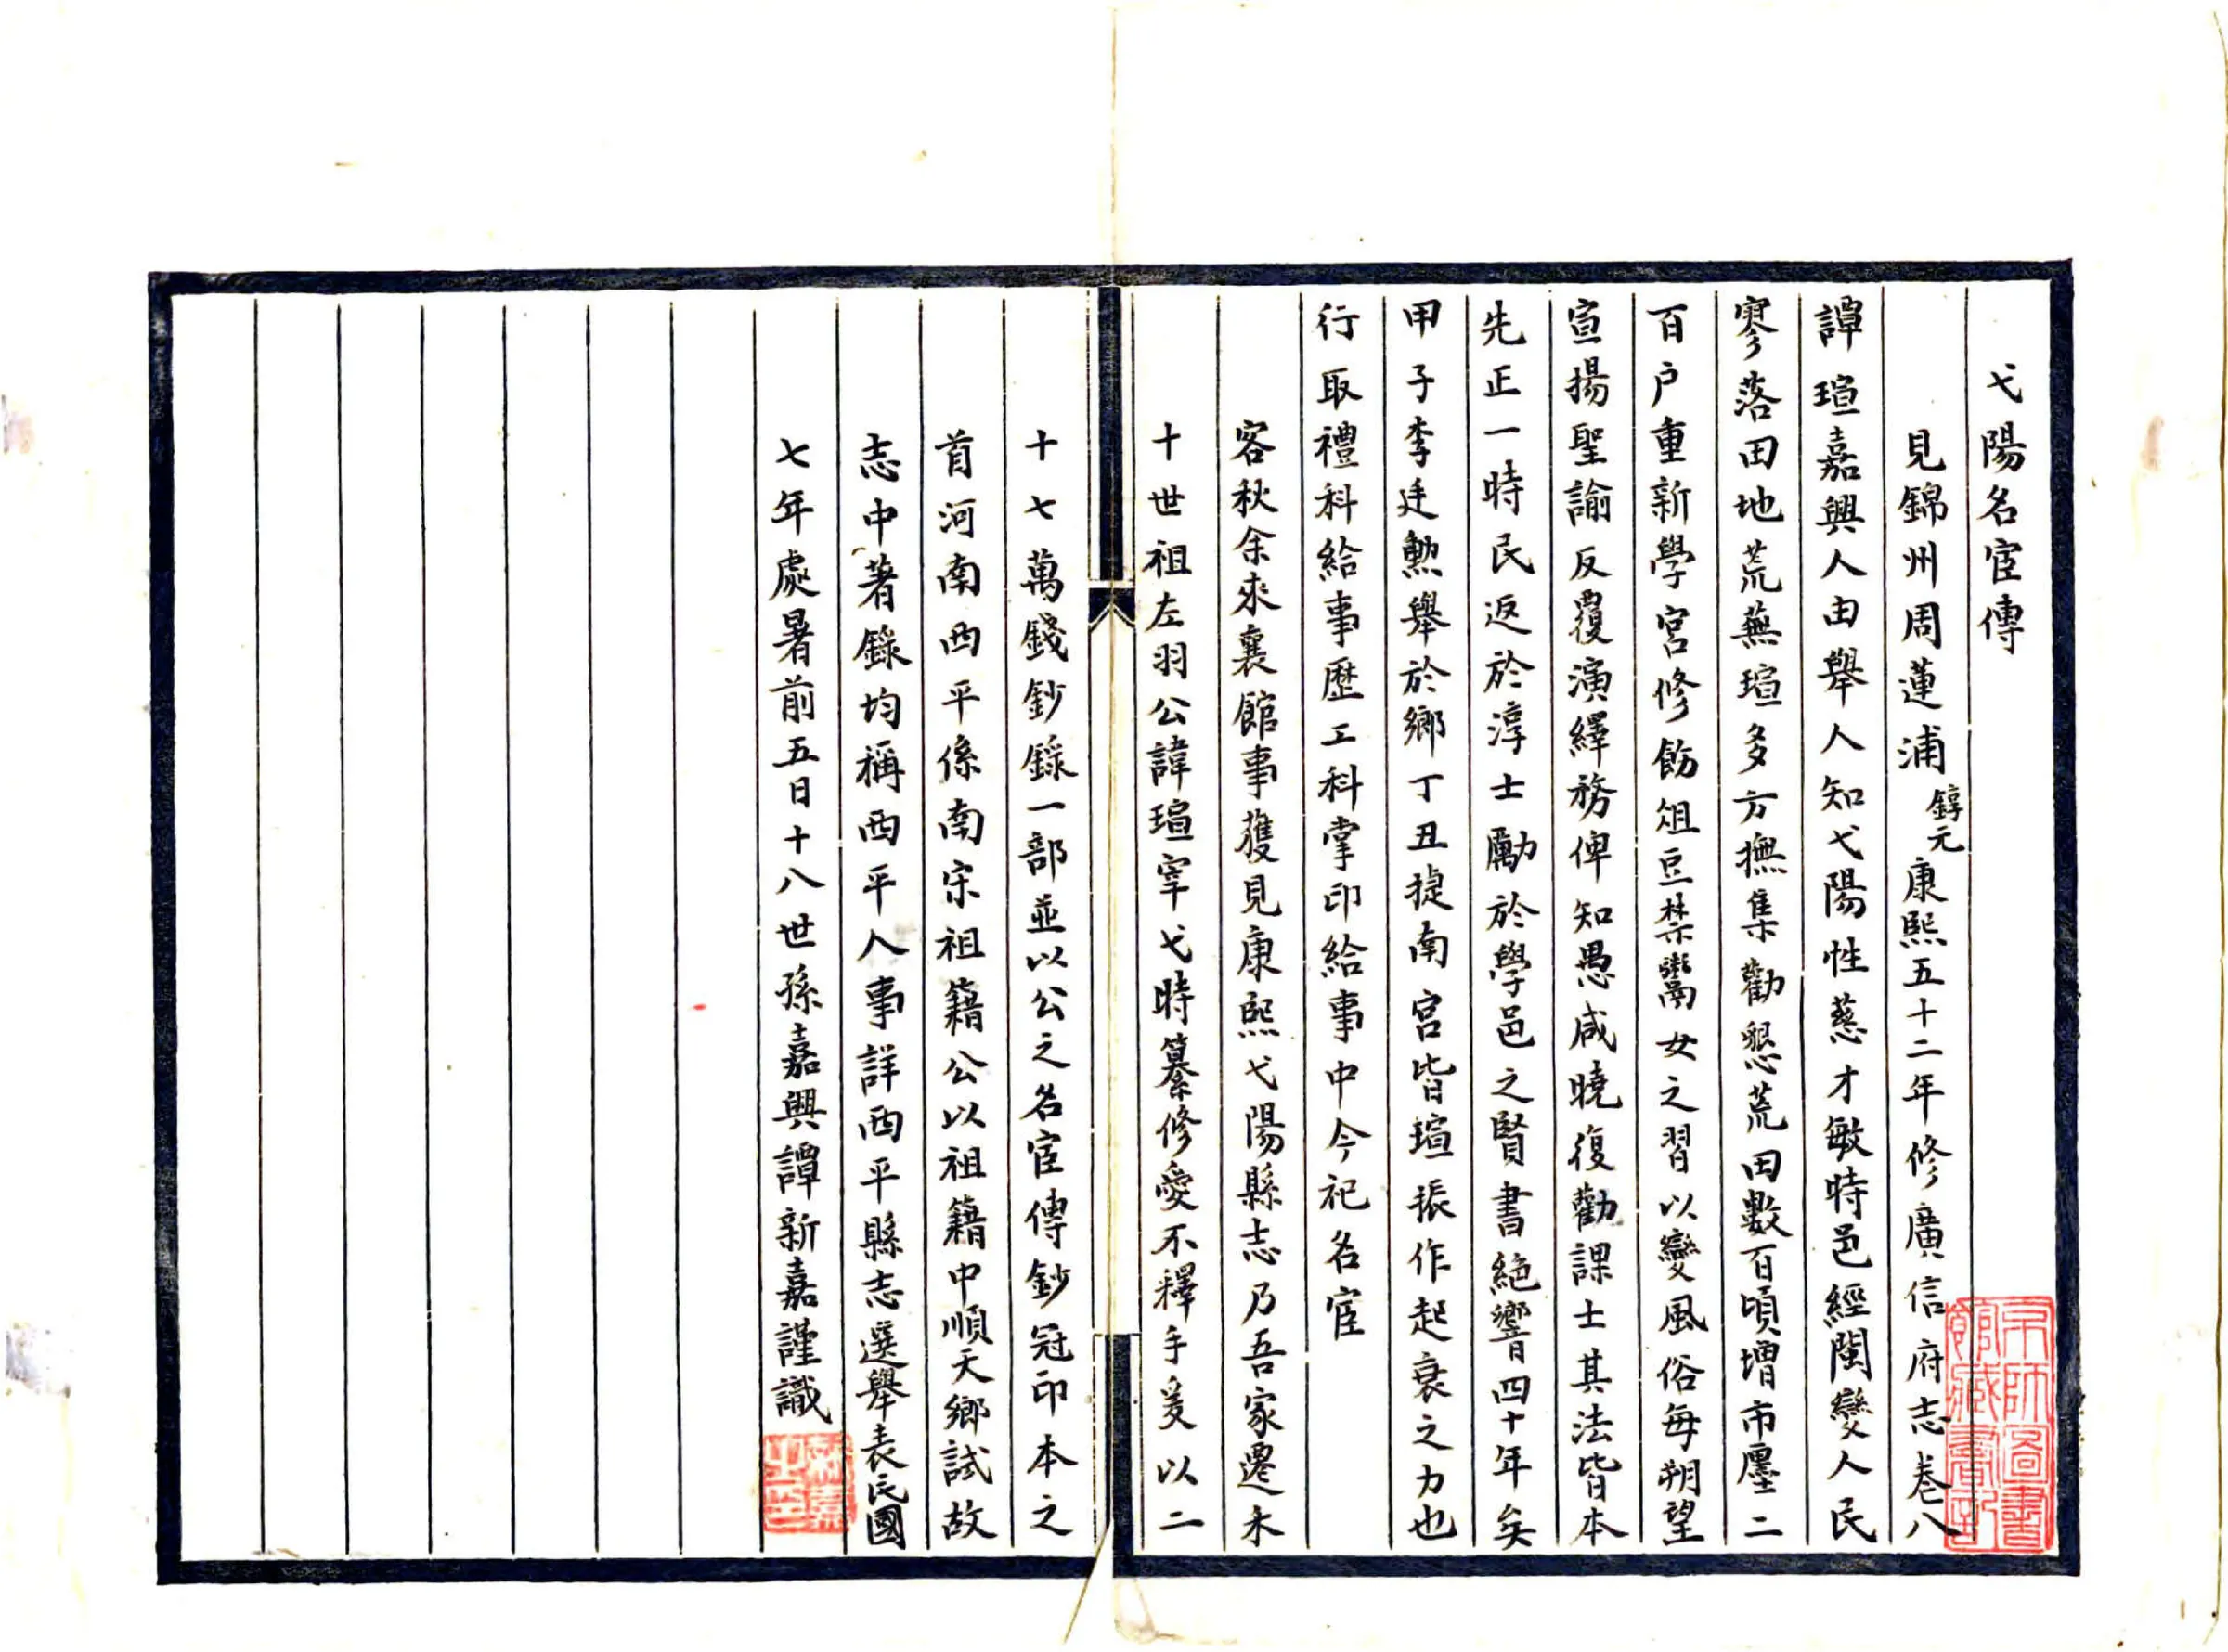 弋陽名宦傳
見錦州周蓮浦錞元康熙五十二年修廣信府志卷八
譚瑄嘉興人由舉人知弋陽性慈才敏時邑經閩變人民
寥落田地荒蕪瑄多方撫集勸懇荒田數百頃增市廛二
百户重新學宮修飭俎豆禁鬻女之習以變風俗每朔望
宣揚聖諭反覆演繹務俾知愚咸曉復勸課士其法皆本
先正一時民返於淳士勵於學邑之賢書絶響四十年矣
甲子李廷勲舉於鄉丁丑捷南宮皆瑄振作起衰之力也
行取禮科給事歷工科掌印給事中今祀名宦
客秋余來襄館事獲見康熙弋陽縣志乃吾家遷禾
十世祖左羽公諱瑄宰弋時纂修愛不釋手爰以二
十七萬錢鈔錄一部並以公之名宦傳鈔冠印本之
首河南西平係南宋祖籍公以祖籍中順天鄉試故
志中著錄均稱西平人事詳西平縣志選舉表民國
七年處暑前五日十八世孫嘉興譚新嘉謹識
京師圖書
館藏書記
新嘉
之印